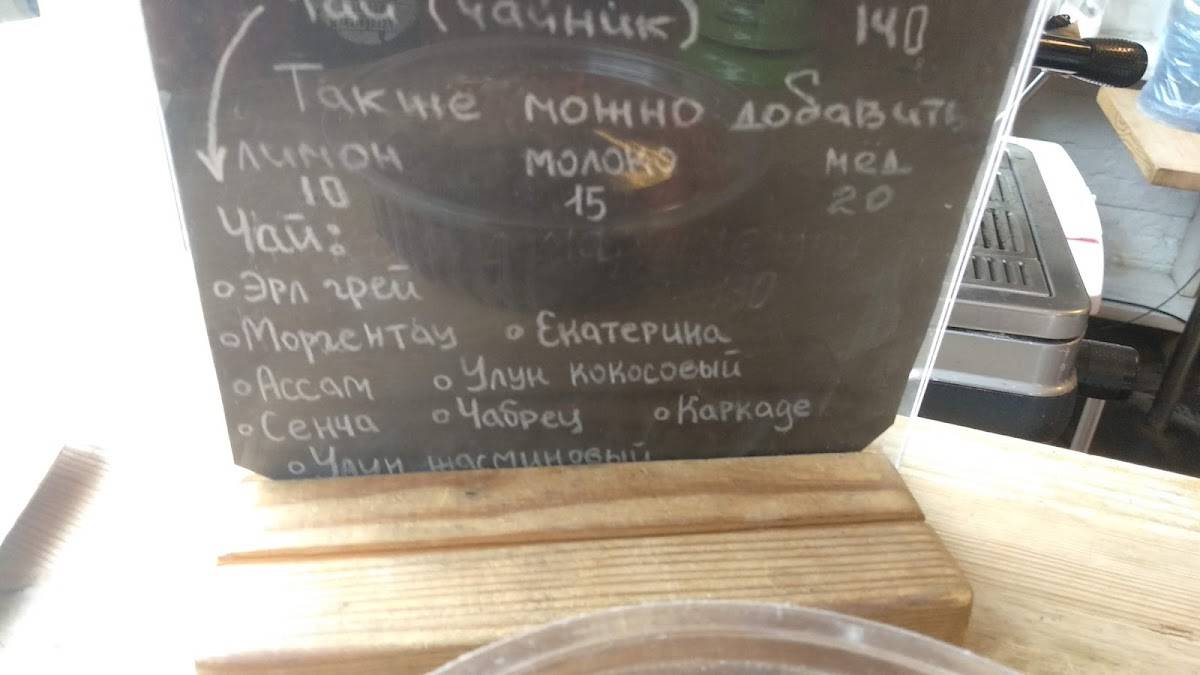 Чай (чайник) 140
Также можно добавить
лимон молоко мёд
10 15 20
Чай:
Эрл грей
Моргентау Екатерина
Ассам Улун кокосовый
Сенча Чабрец Каркаде
Улун жасминовый